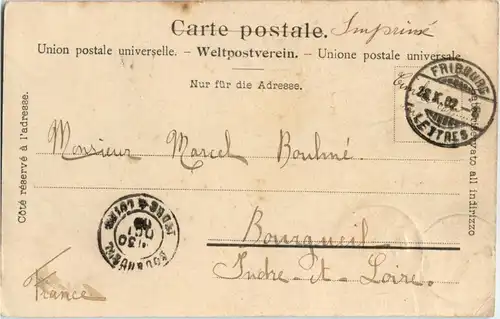 Carte postale. Imprimé
Union postale universelle. – Weltpostverein. – Unione postale universale
Nur für die Adresse.
Côté réservé à l'adresse.
FRIBOURG
LETTRES
Monsieur Marcel Boulmé.
Bourgueil
Indre-et-Loire.
France
BOURGUEIL
INDRE-&-LOIRE
30
OCT
02
all indirizzo